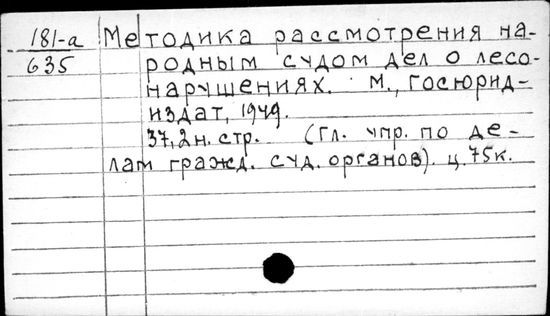 181-а Методика рассмотрения на-
635 родным судом дел о лесо-
нарушениях. М., Госюрид-
издат, 1949.
37,2н. стр. (Гл. упр. по де-
лам гражд. суд. органов). ц. 75к.